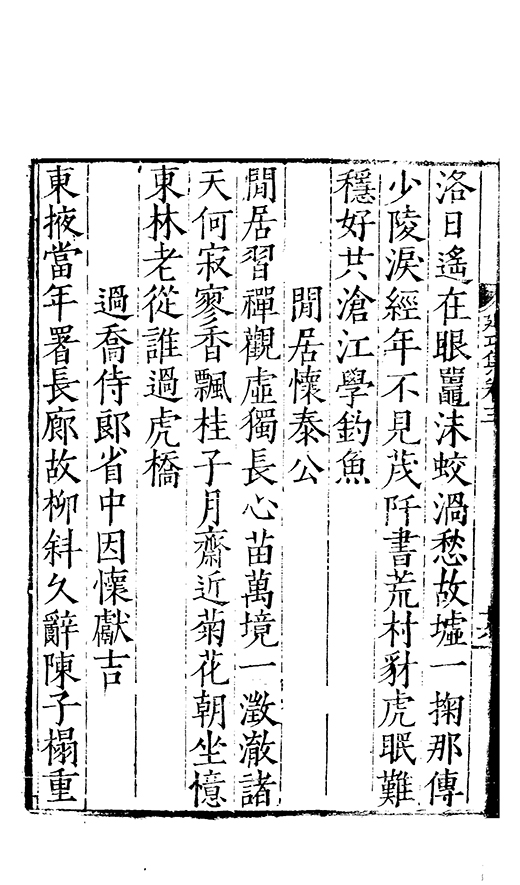 洛日遙在眼鼉沫蛟渦愁故墟一掬那傳
少陵淚經年不見茂阡書荒村豺虎眠難
穩好共滄江學釣魚
閒居懷泰公
閒居習禪觀虛獨長心苗萬境一澂澈諸
天何寂寥香飄桂子月齋近菊花朝坐憶
東林老從誰過虎橋
過喬侍郎省中因懷獻吉
東掖當年署長廊故柳斜久辭陳子榻重